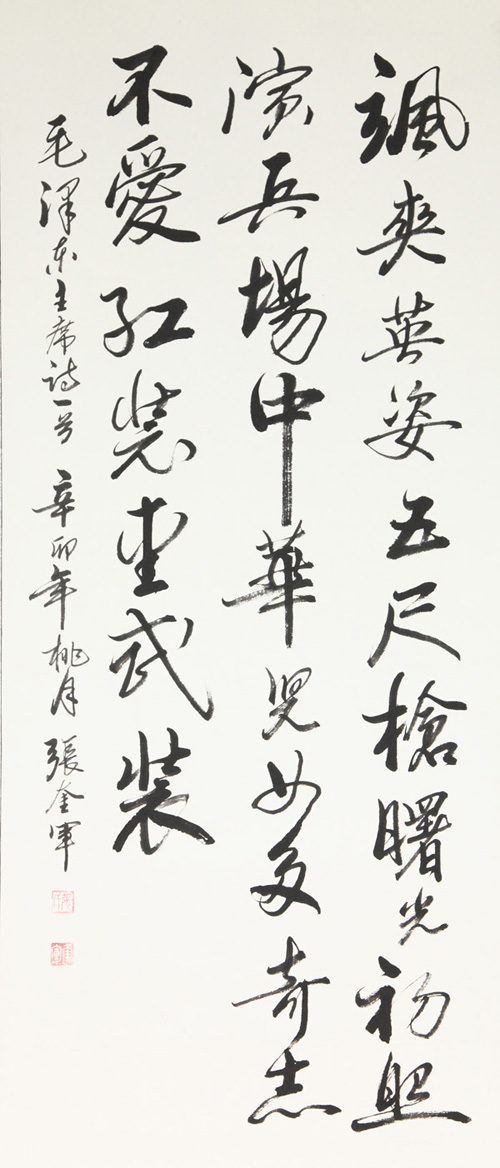 颯爽英姿五尺槍曙光初照
演兵場中華兒女多奇志
不愛紅裝愛武裝
毛澤東主席詩一首 辛卯年桃月 張奎軍